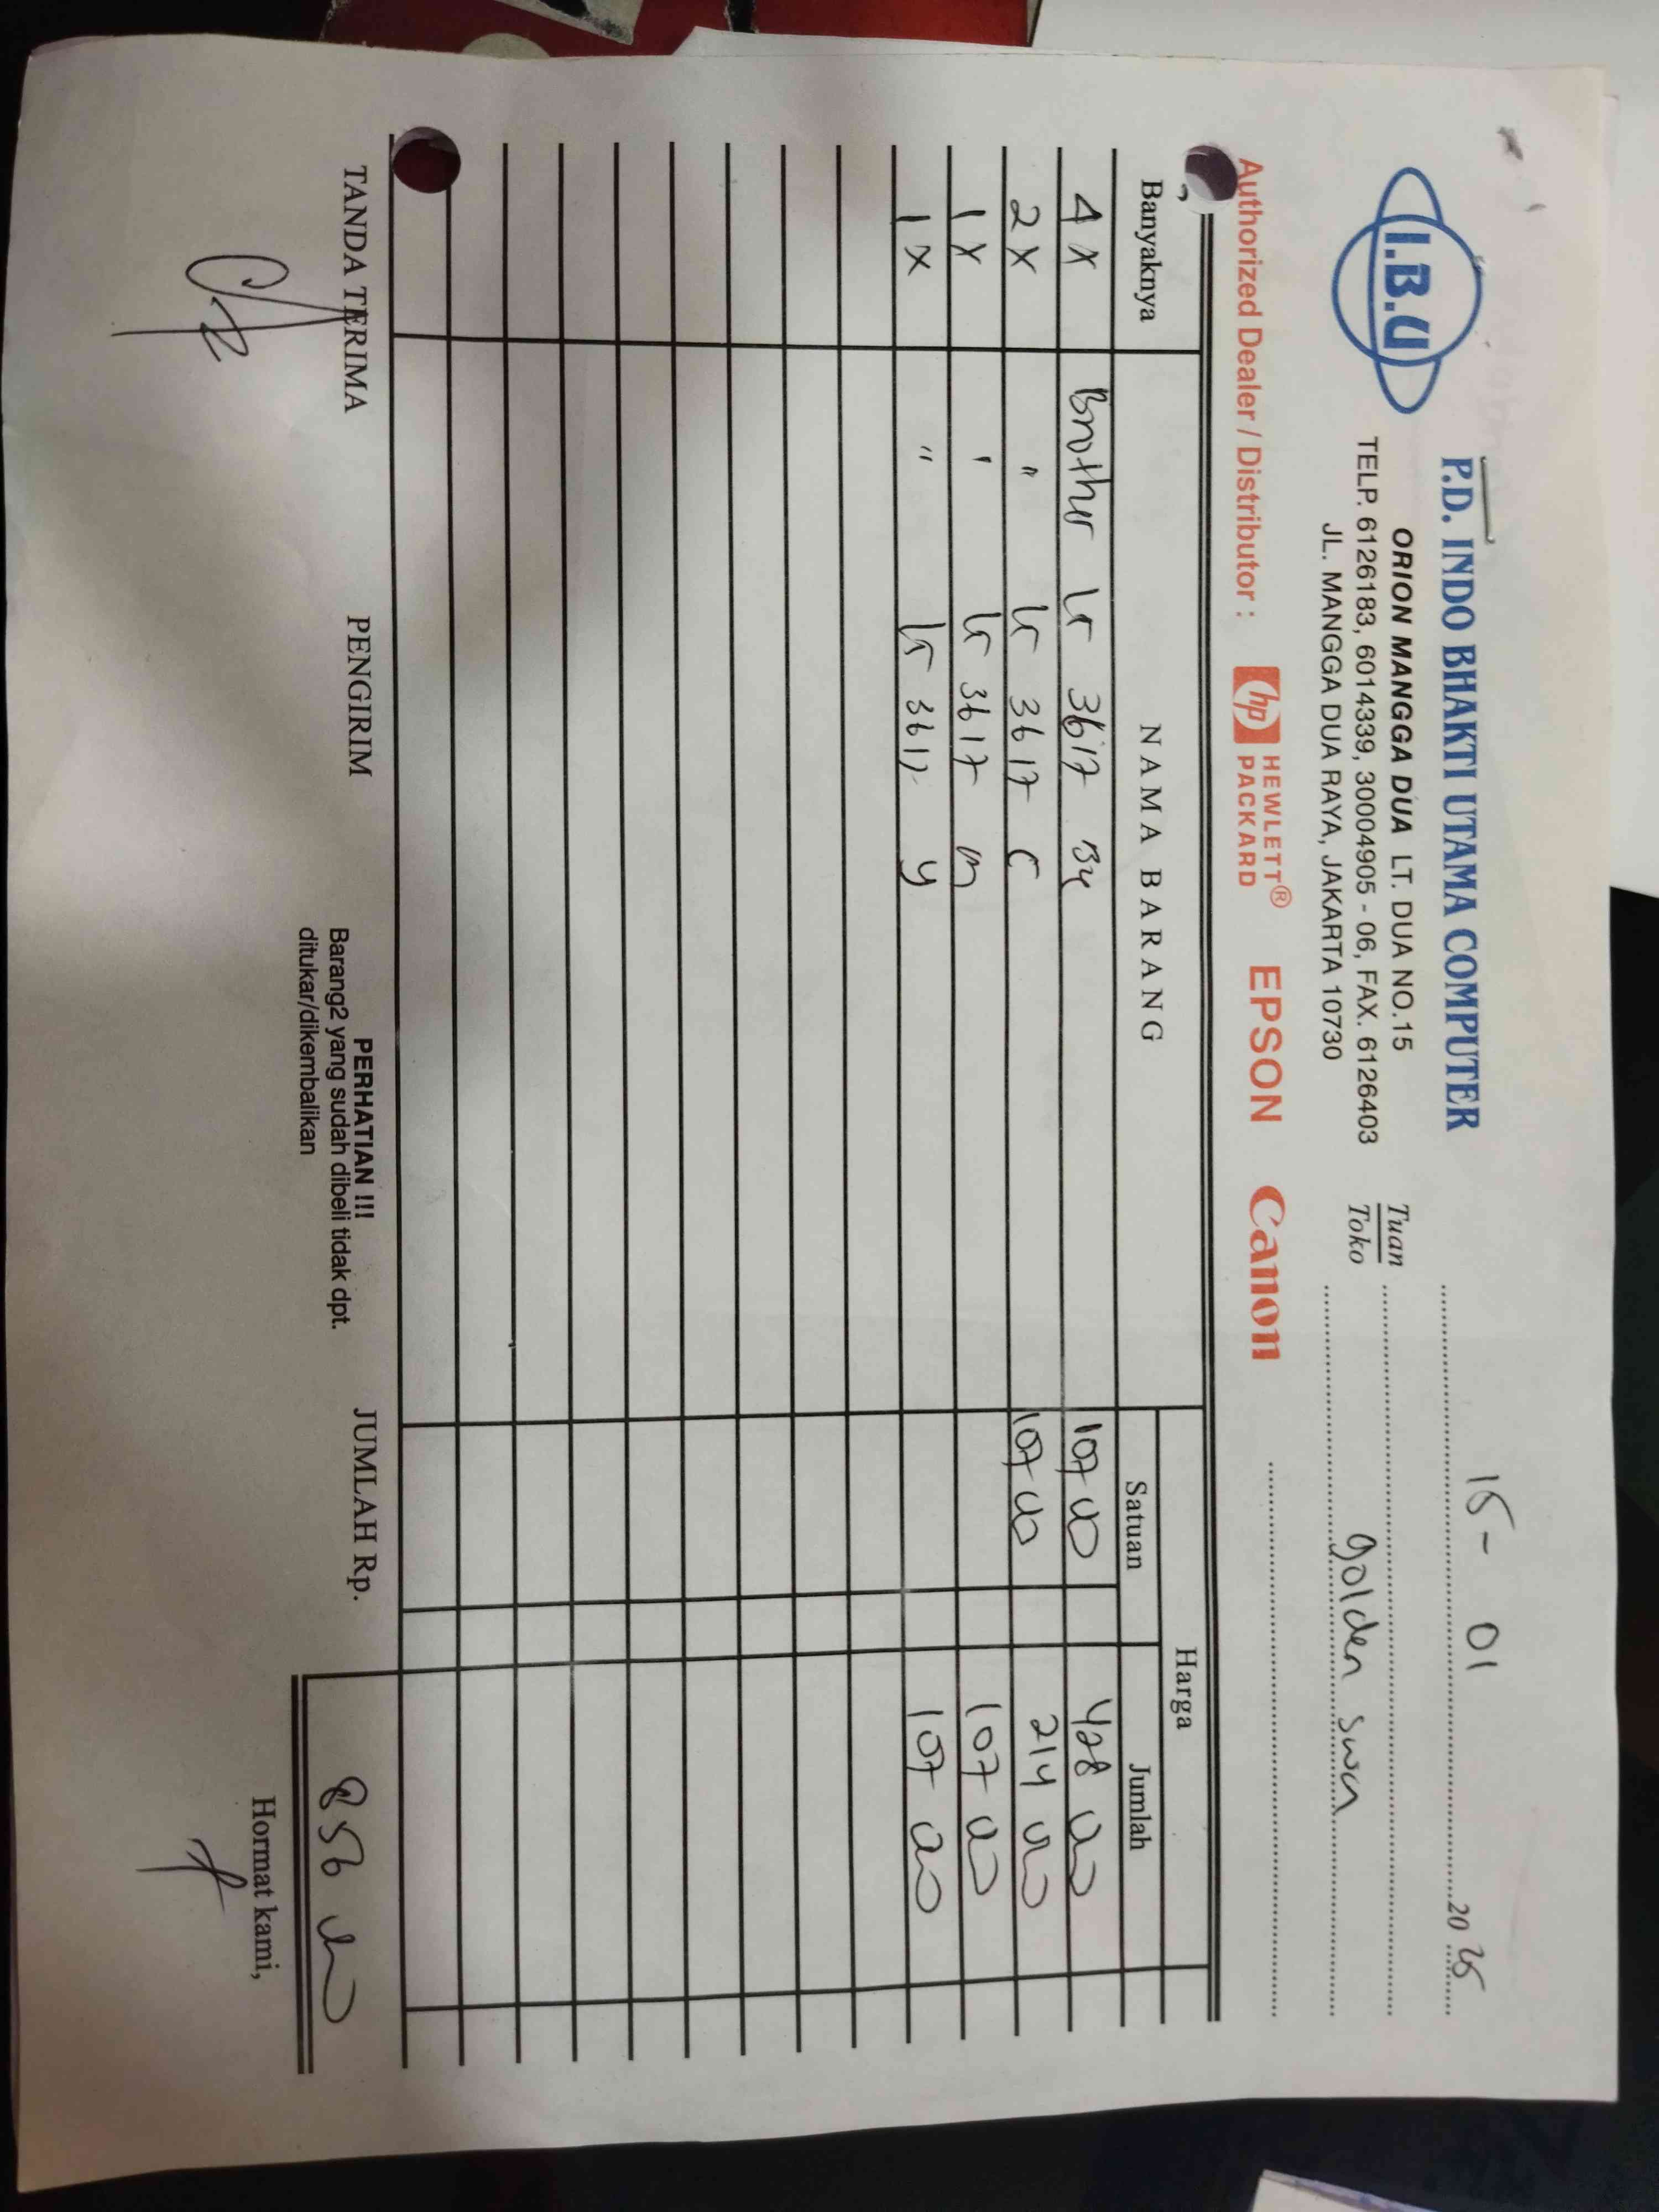 I.B.U
P.D. INDO BHAKTI UTAMA COMPUTER
ORION MANGGA DUA LT. DUA NO.15
TELP. 6126183, 6014339, 30004905 - 06, FAX. 6126403
JL. MANGGA DUA RAYA, JAKARTA 10730
15 - 01 20 25
Tuan
Toko golden swan
Authorized Dealer / Distributor : hp HEWLETT® PACKARD EPSON Canon
Banyaknya NAMA BARANG Harga
Satuan Jumlah
4 x Brother 3617 107 428
2 x " 3617 C 107 214
1 x " 3617 m 107
1 x " 3617 y 107
TANDA TERIMA PENGIRIM JUMLAH Rp. 856
PERHATIAN !!!
Barang2 yang sudah dibeli tidak dpt.
ditukar/dikembalikan
Hormat kami,